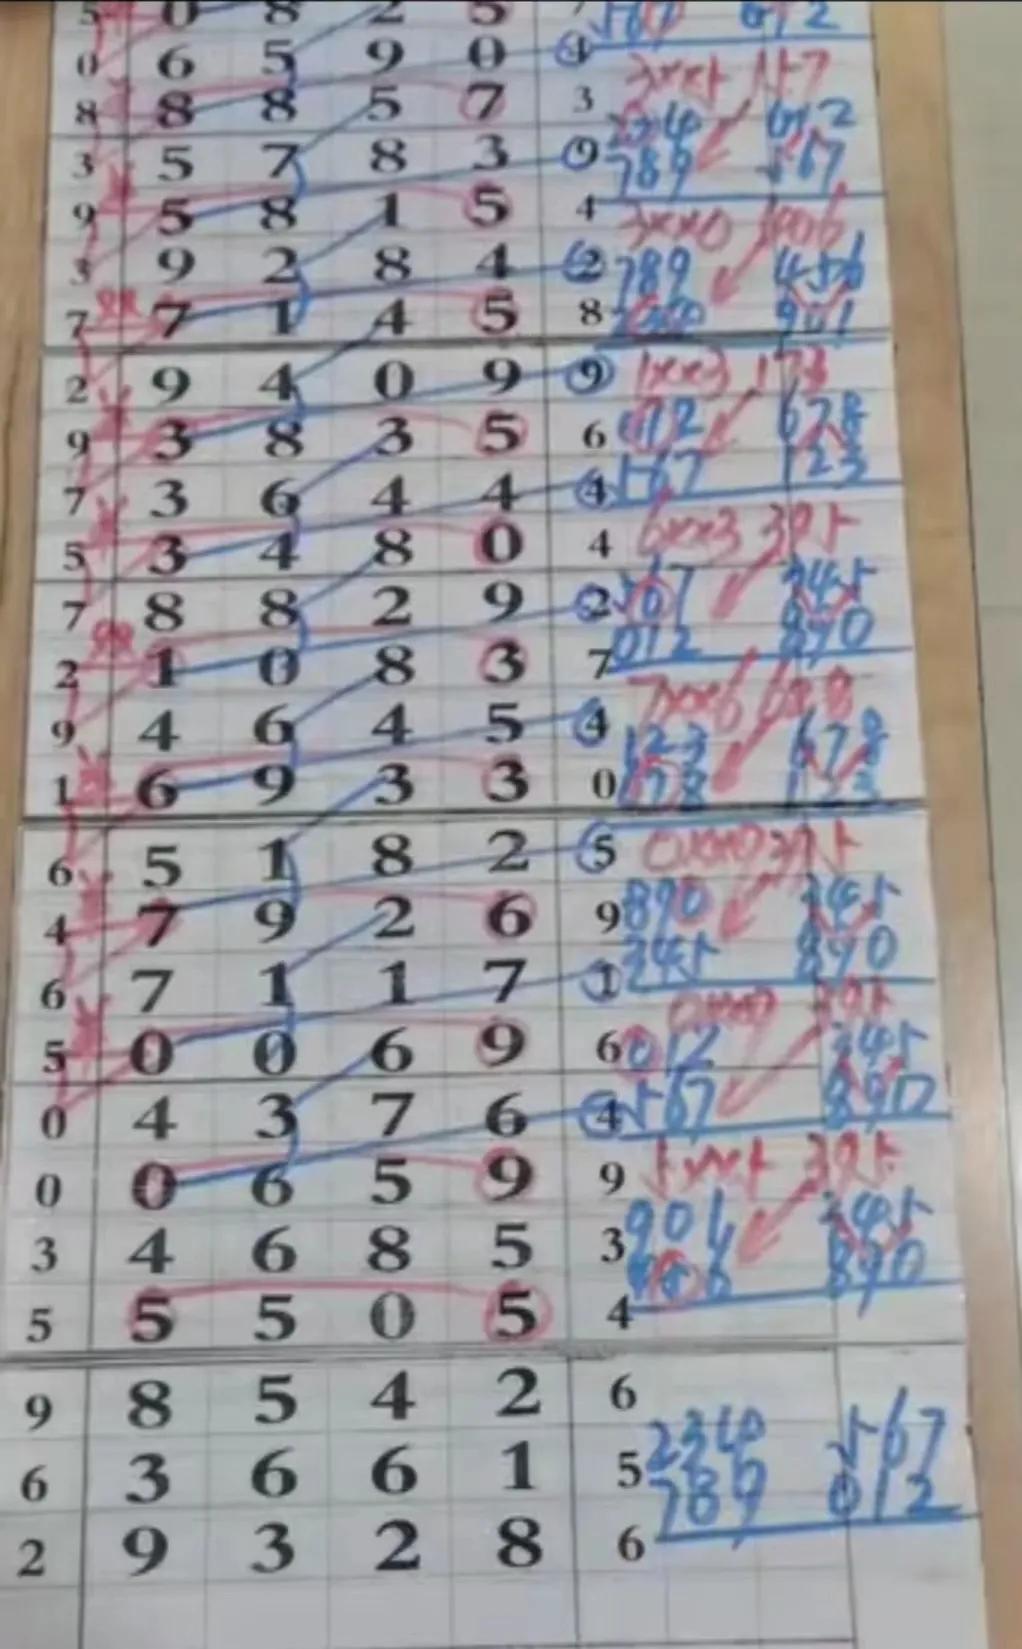 5 0 8 2 5 7 567 012
0 6 5 9 0 4
8 8 8 5 7 3 012
3 5 7 8 3 9 789 567
9 5 8 1 5 4
3 9 2 8 4 2 789 456
7 7 1 4 5 8 901
2 9 4 0 9 9 1xx3 173
9 3 8 3 5 6 012 678
7 3 6 4 4 4 567 123
5 3 4 8 0 4 6xx3 395
7 8 8 2 9 2 567 345
2 1 0 8 3 7 012 890
9 4 6 4 5 4 7xx6
1 6 9 3 3 0 123 678
678 123
6 5 1 8 2 5 0xx0
4 7 9 2 6 9 890 345
6 7 1 1 7 1 345 890
5 0 0 6 9 6 012 345
0 4 3 7 6 4 567 890
0 0 6 5 9 9 395
3 4 6 8 5 3 901 345
5 5 5 0 5 4 890
9 8 5 4 2 6
6 3 6 6 1 5 234 567
789 012
2 9 3 2 8 6